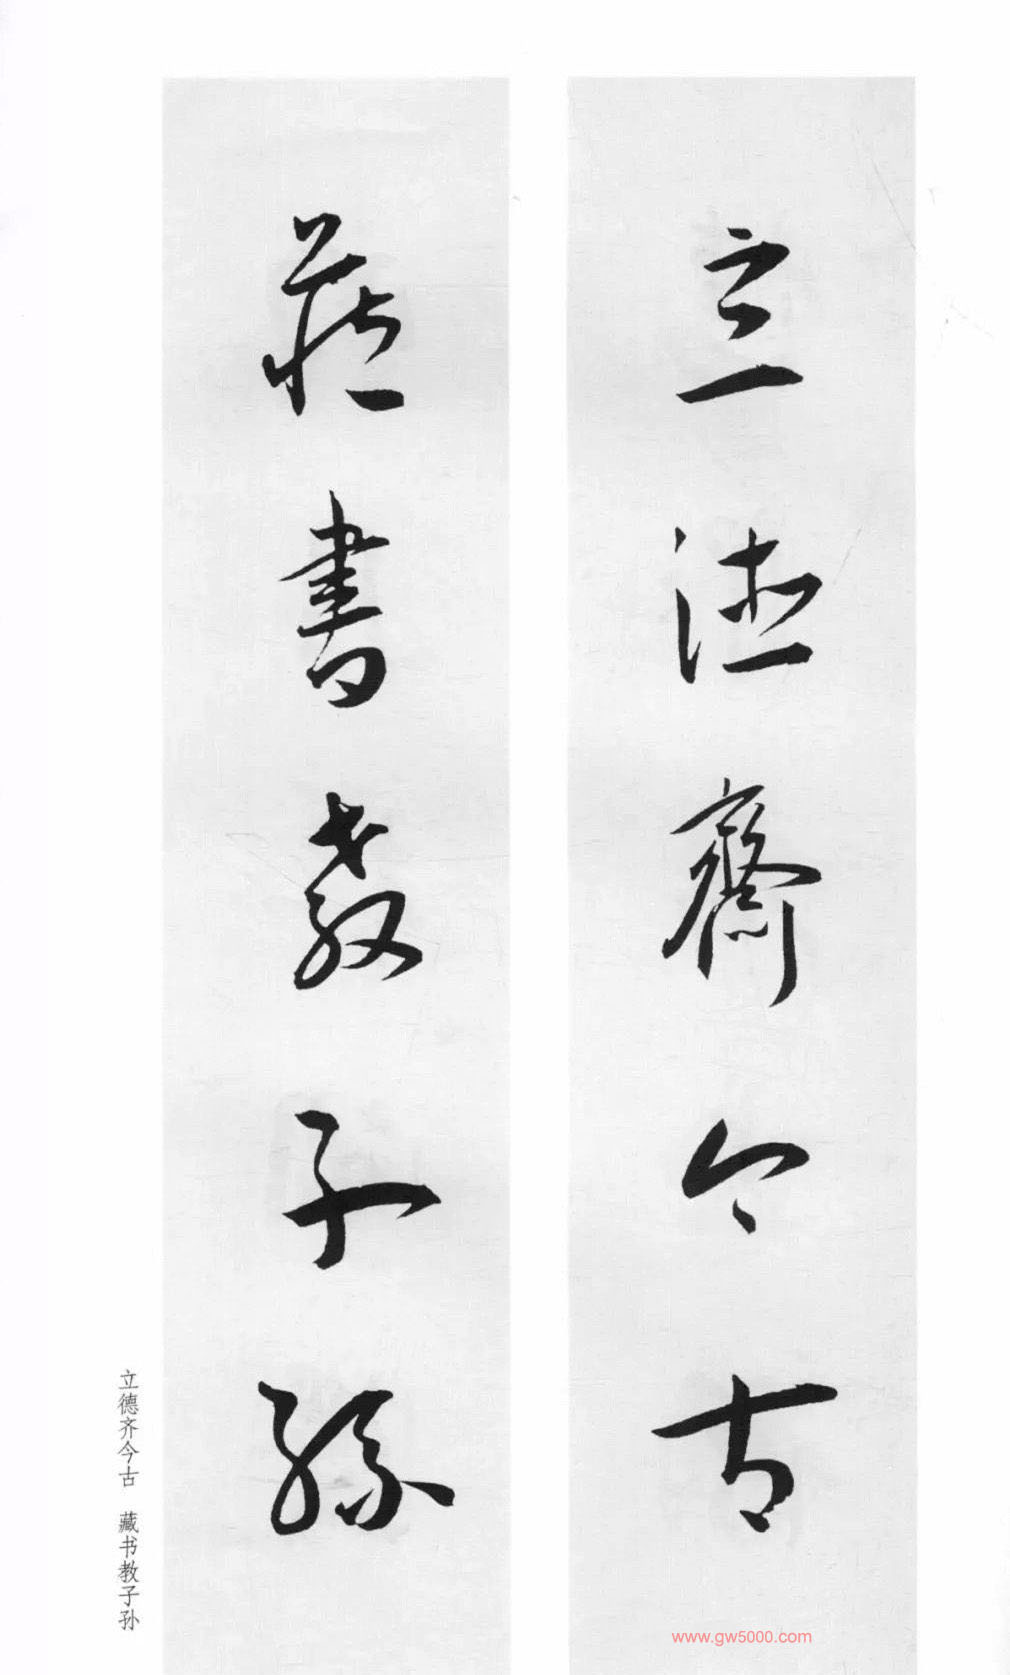 立德齊今古
藏書教子孫
立德齐今古 藏书教子孙
www.gw5000.com